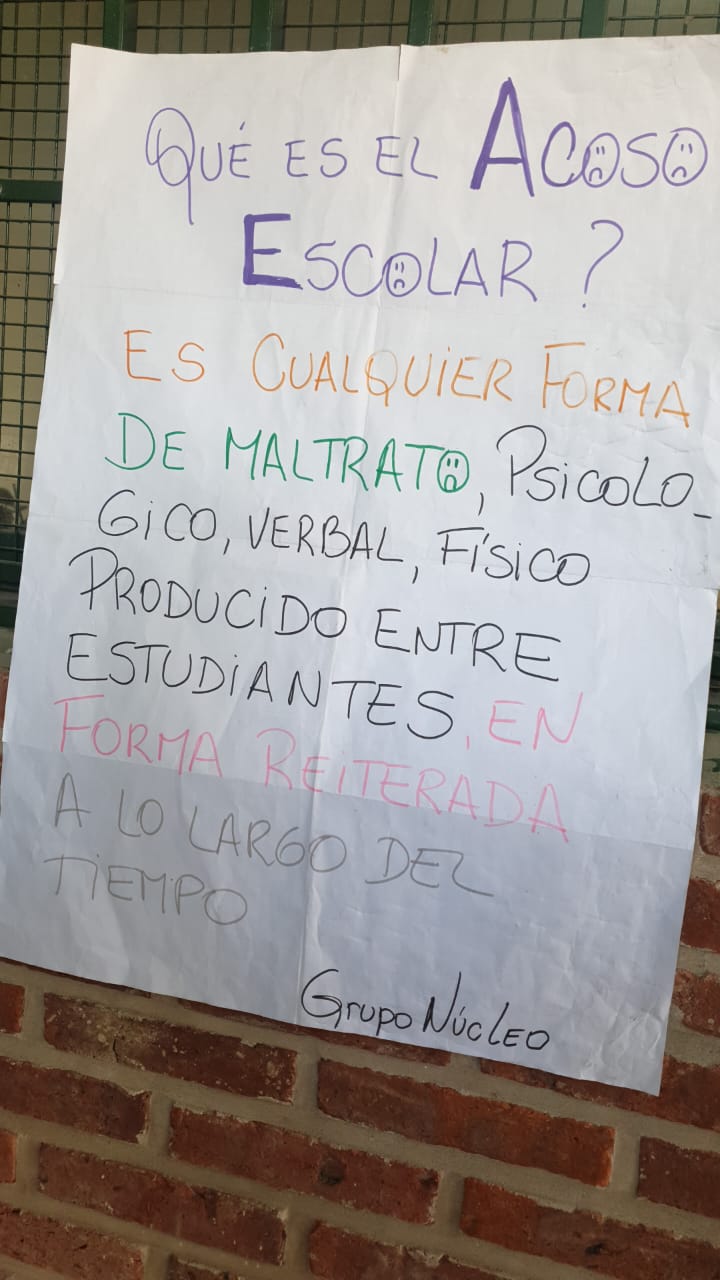 QUÉ ES EL ACOSO
ESCOLAR ?
ES CUALQUIER FORMA
DE MALTRATO, PSICOLO_
GICO, VERBAL, FÍSICO
PRODUCIDO ENTRE
ESTUDIANTES, EN
FORMA REITERADA
A LO LARGO DEL
TIEMPO
GRUPO NÚCLEO